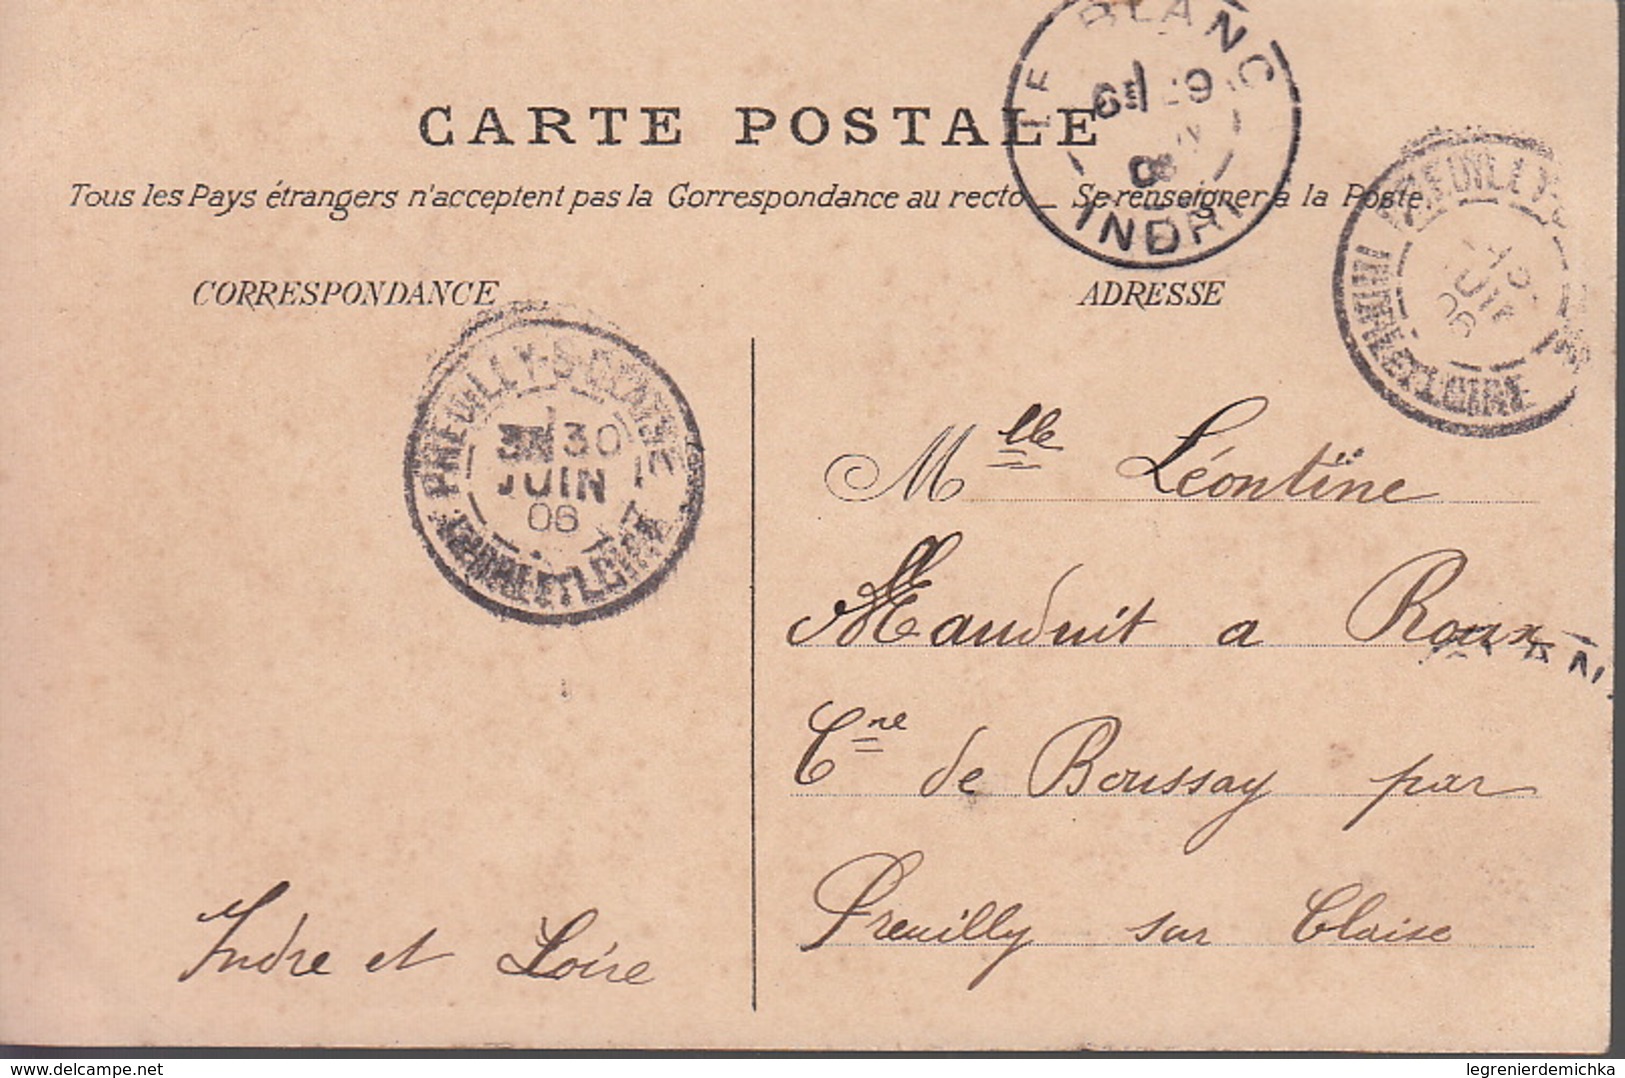 LE BLANC
6E 29
06
INDRE
CARTE POSTALE
Tous les Pays étrangers n'acceptent pas la Correspondance au recto _ Se renseigner à la Poste
PREUILLY-S
JUIN
06
INDRE-ET-LOIRE
CORRESPONDANCE
ADRESSE
PREUILLY-S-CLAISE
3E 30
JUIN
06
INDRE-ET-LOIRE
Mlle Léontine
Mauduit a Roux
Cne de Boussay par
Preuilly sur Claise
Indre et Loire
delcampe.net
legrenierdemichka